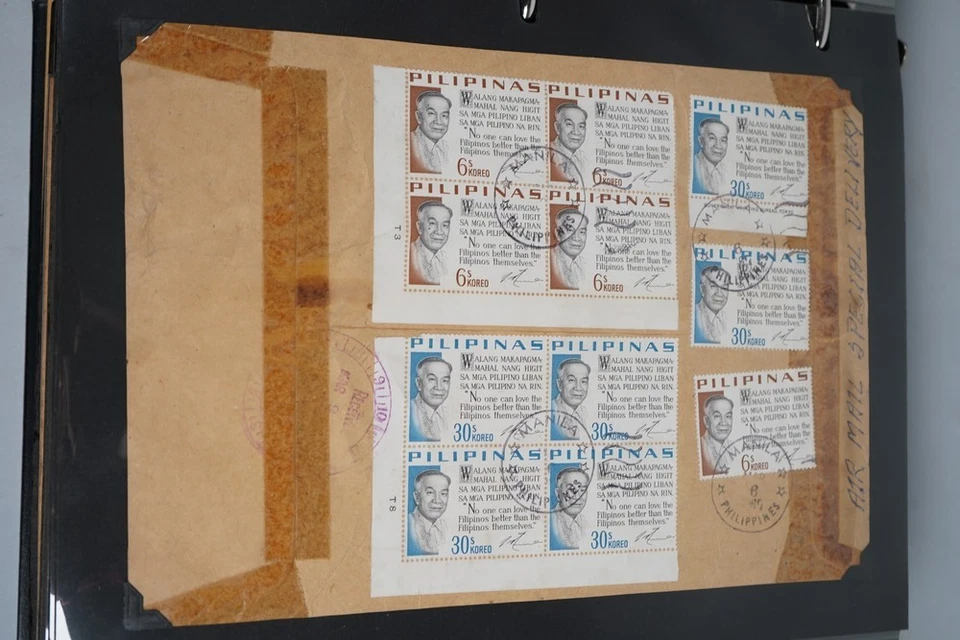 PILIPINAS
WALANG MAKAPAGMA-
MAHAL NANG HIGIT
SA MGA PILIPINO LIBAN
SA MGA PILIPINO NA RIN.
"No one can love the
Filipinos better than the
Filipinos themselves."
6s KOREO
PILIPINAS
WALANG MAKAPAGMA-
MAHAL NANG HIGIT
SA MGA PILIPINO LIBAN
SA MGA PILIPINO NA RIN.
"No one can love the
Filipinos better than the
Filipinos themselves."
6s KOREO
PILIPINAS
WALANG MAKAPAGMA-
MAHAL NANG HIGIT
SA MGA PILIPINO LIBAN
SA MGA PILIPINO NA RIN.
"No one can love the
Filipinos better than the
Filipinos themselves."
6s KOREO
PILIPINAS
WALANG MAKAPAGMA-
MAHAL NANG HIGIT
SA MGA PILIPINO LIBAN
SA MGA PILIPINO NA RIN.
"No one can love the
Filipinos better than the
Filipinos themselves."
6s KOREO
MANILA
PHILIPPINES
T3
PILIPINAS
WALANG MAKAPAGMA-
MAHAL NANG HIGIT
SA MGA PILIPINO LIBAN
SA MGA PILIPINO NA RIN.
"No one can love the
Filipinos better than the
Filipinos themselves."
30s KOREO
PILIPINAS
WALANG MAKAPAGMA-
MAHAL NANG HIGIT
SA MGA PILIPINO LIBAN
SA MGA PILIPINO NA RIN.
"No one can love the
Filipinos better than the
Filipinos themselves."
30s KOREO
PILIPINAS
WALANG MAKAPAGMA-
MAHAL NANG HIGIT
SA MGA PILIPINO LIBAN
SA MGA PILIPINO NA RIN.
"No one can love the
Filipinos better than the
Filipinos themselves."
30s KOREO
PILIPINAS
WALANG MAKAPAGMA-
MAHAL NANG HIGIT
SA MGA PILIPINO LIBAN
SA MGA PILIPINO NA RIN.
"No one can love the
Filipinos better than the
Filipinos themselves."
30s KOREO
MANILA
PHILIPPINES
T8
PILIPINAS
WALANG MAKAPAGMA-
MAHAL NANG HIGIT
SA MGA PILIPINO LIBAN
SA MGA PILIPINO NA RIN.
"No one can love the
Filipinos better than the
Filipinos themselves."
30s KOREO
PILIPINAS
WALANG MAKAPAGMA-
MAHAL NANG HIGIT
SA MGA PILIPINO LIBAN
SA MGA PILIPINO NA RIN.
"No one can love the
Filipinos better than the
Filipinos themselves."
30s KOREO
PHILIPPINES
PILIPINAS
WALANG MAKAPAGMA-
MAHAL NANG HIGIT
SA MGA PILIPINO LIBAN
SA MGA PILIPINO NA RIN.
"No one can love the
Filipinos better than the
Filipinos themselves."
6s KOREO
MANILA
6
PHILIPPINES
AIR MAIL SPECIAL DELIVERY